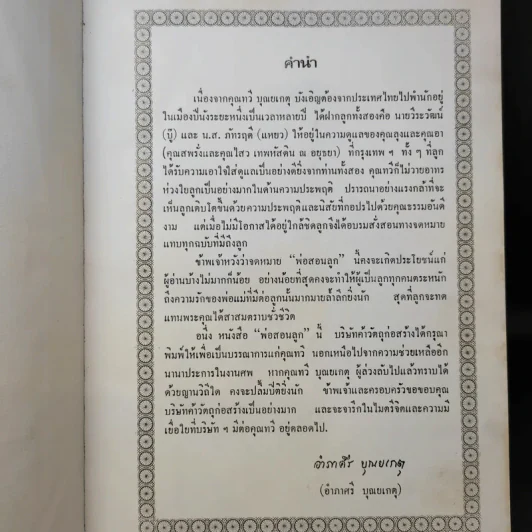 คำนำ
เนื่องจากคุณทวี บุณยเกตุ บังเอิญต้องจากประเทศไทยไปพำนักอยู่
ในเมืองปีนังระยะหนึ่งเป็นเวลาหลายปี ได้ฝากลูกทั้งสองคือ นายวีระวัฒน์
(ปู๊) และ น.ส. ภัทรฤดี (แหยว) ให้อยู่ในความดูแลของคุณลุงและคุณอา
(คุณสพรั่งและคุณไสว เทพหัสดิน ณ อยุธยา) ที่กรุงเทพ ฯ ทั้ง ๆ ที่ลูก
ได้รับความเอาใจใส่ดูแลเป็นอย่างดียิ่งจากท่านทั้งสอง คุณทวีก็ไม่วายอาทร
ห่วงใยลูกเป็นอย่างมากในด้านความประพฤติ ปรารถนาอย่างแรงกล้าที่จะ
เห็นลูกเติบโตขึ้นด้วยความประพฤติและนิสัยที่กอปรไปด้วยคุณธรรมอันดี
งาม แต่เมื่อไม่มีโอกาสได้อยู่ใกล้ชิดลูกจึงได้อบรมสั่งสอนทางจดหมาย
แทบทุกฉบับที่มีถึงลูก
ข้าพเจ้าหวังว่าจดหมาย “พ่อสอนลูก” นี้คงจะเกิดประโยชน์แก่
ผู้อ่านบ้างไม่มากก็น้อย อย่างน้อยที่สุดคงจะทำให้ผู้เป็นลูกทุกคนตระหนัก
ถึงความรักของพ่อแม่ที่มีต่อลูกนั้นมากมายล้ำลึกยิ่งนัก สุดที่ลูกจะทด
แทนพระคุณได้สาสมตราบชั่วชีวิต
อนึ่ง หนังสือ “พ่อสอนลูก” นี้ บริษัทค้าวัตถุก่อสร้างได้กรุณา
พิมพ์ให้เพื่อเป็นบรรณาการแก่คุณทวี นอกเหนือไปจากความช่วยเหลืออีก
นานาประการในงานศพ หากคุณทวี บุณยเกตุ ผู้ล่วงลับไปแล้วทราบได้
ด้วยญาณวิถีใด คงจะปลื้มปีติยิ่งนัก ข้าพเจ้าและครอบครัวขอขอบคุณ
บริษัทค้าวัตถุก่อสร้างเป็นอย่างมาก และจะจารึกในไมตรีจิตและความมี
เยื่อใยที่บริษัท ฯ มีต่อคุณทวี อยู่ตลอดไป.
อำภาศรี บุณยเกตุ
(อำภาศรี บุณยเกตุ)